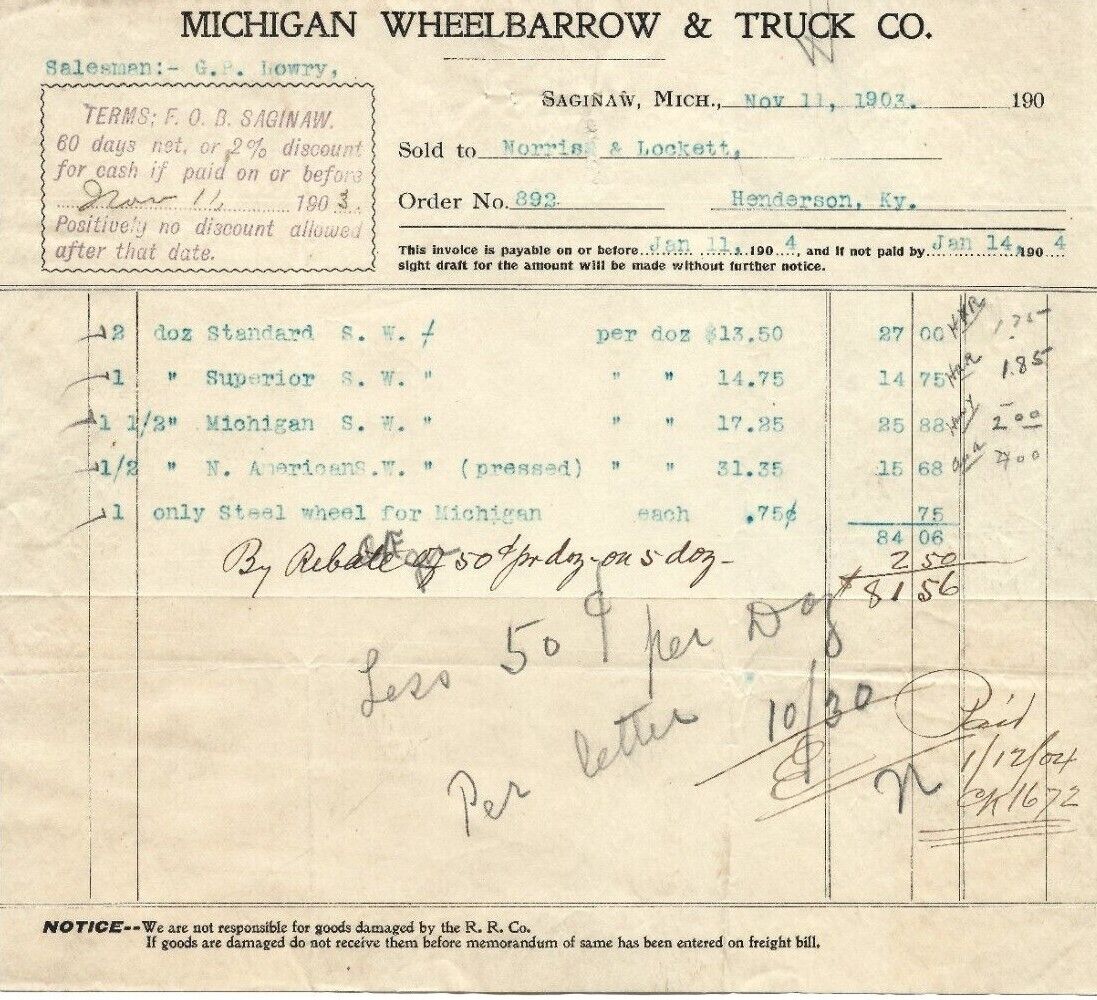 MICHIGAN WHEELBARROW & TRUCK CO.
Salesman:- G.P. Lowry,
SAGINAW, MICH., Nov 11, 1903. 190
TERMS: F. O. B. SAGINAW.
60 days net, or 2% discount
for cash if paid on or before
Nov 11, 1903.
Positively no discount allowed
after that date.
Sold to Norris & Lockett,
Order No. 892 Henderson, Ky.
This invoice is payable on or before Jan 11, 1904, and if not paid by Jan 14, 1904
sight draft for the amount will be made without further notice.
2 doz Standard S. W. per doz $13.50 27 00 1.75
1 " Superior S. W. " " " 14.75 14 75 1.85
1 1/2" Michigan S. W. " " " 17.25 25 88 2.00
1/2 " N. American S.W. " (pressed) " " 31.35 15 68 4.00
1 only Steel wheel for Michigan each .75¢ 75
84 06
By Rebate of 50¢ pr doz- on 5 doz- 2 50
$81 56
Less 50¢ per Doz
Per letter 10/30
Paid
1/12/04
CK 1672
NOTICE--We are not responsible for goods damaged by the R. R. Co.
If goods are damaged do not receive them before memorandum of same has been entered on freight bill.